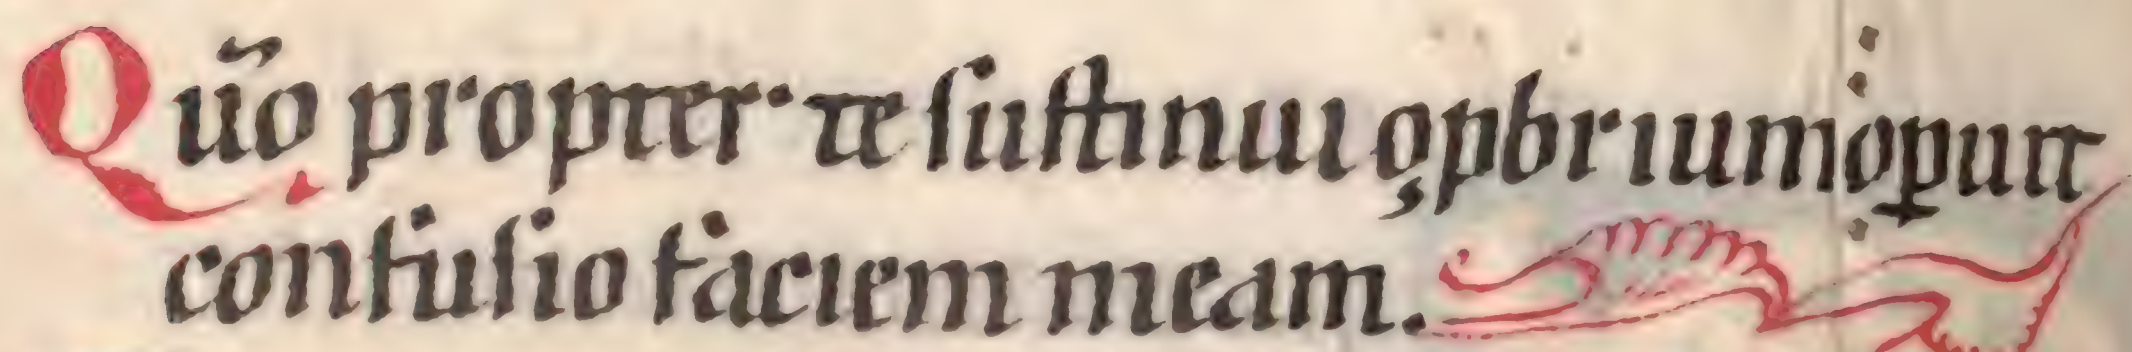 Qũo propter te ſuſtinui oꝓbrium oꝑuit
confuſio faciem meam.